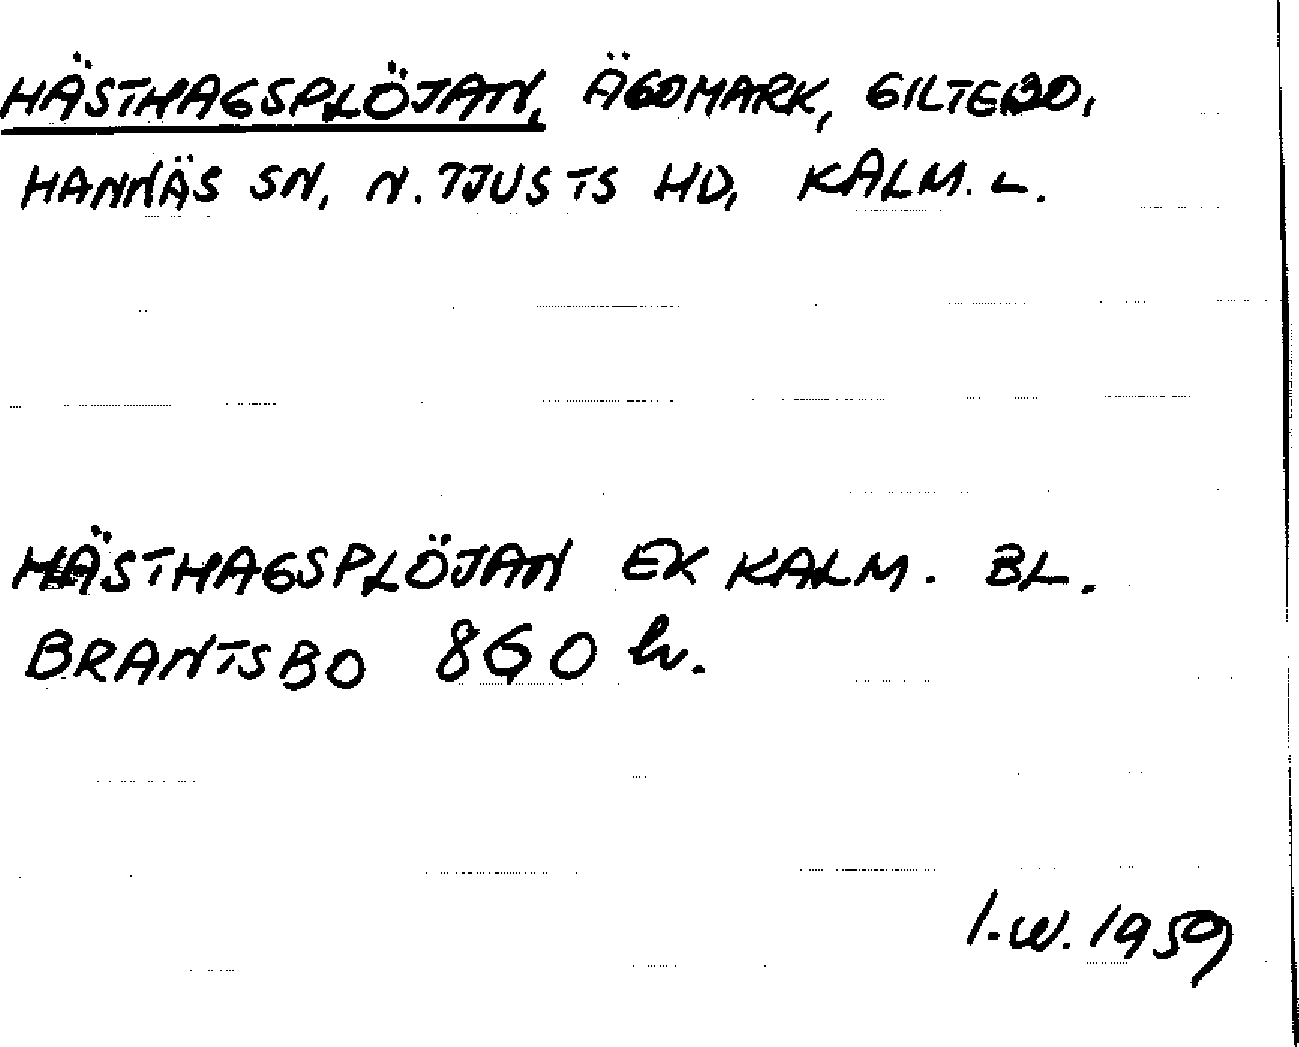 HÄSTHAGSPLÖJAN, ÄGOMARK, GILTEBO,
HANNÄS SN, N. TJUSTS HD, KALM. L.
HÄSTHAGSPLÖJAN EK KALM. BL.
BRANTSBO 860 hr.
I.W. 1959